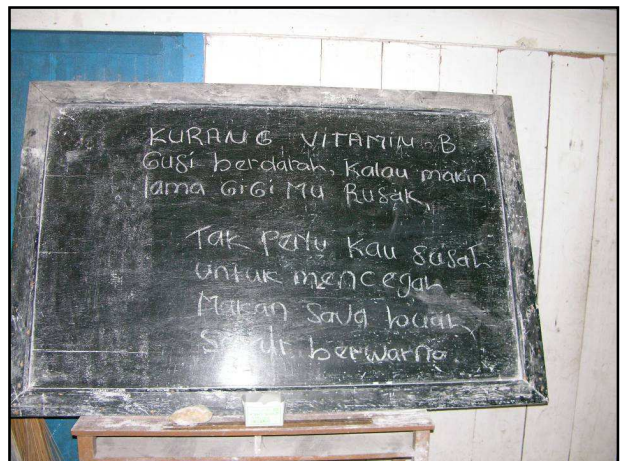 KURANG VITAMIN B
Gusi berdarah, Kalau makin
lama GiGi Mu Rusak,
Tak Perlu Kau susah
untuk mencegah
Makan saya buah,
Sayur berwarna